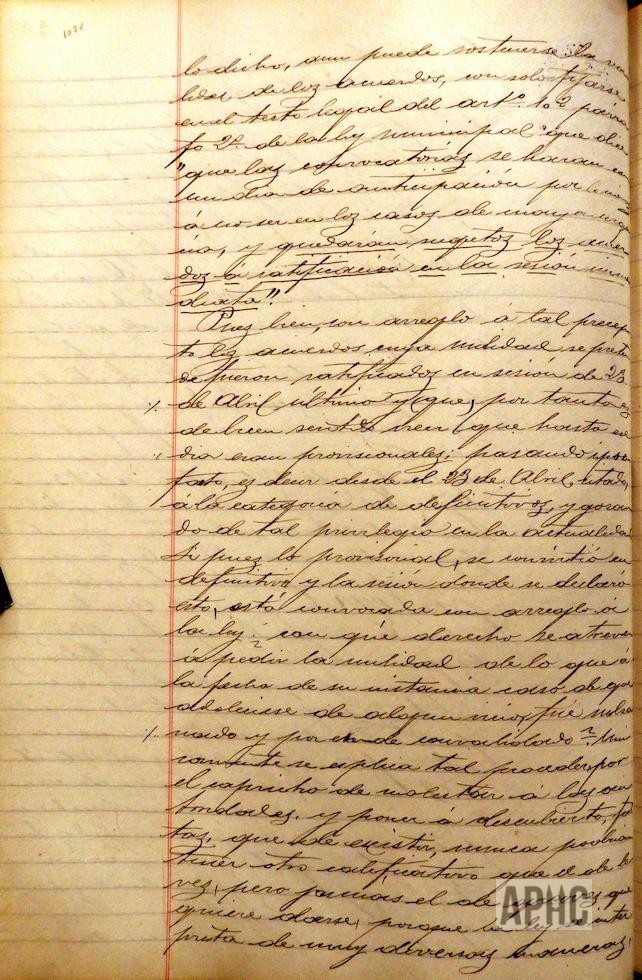 lo dicho, aun puede sostenerse la
lidez de los acuerdos, con solo fijarse
en el testo legal del artº. 102 párra
fo 2º de la ley municipal que dice
"que las convocatorias se haran con
un dia de anticipación por lo menos
á no ser en los casos de mayor urgen
cia, y quedarán sugetos los acuer
dos a ratificación en la sesión inme
diata".
Pues bien, con arreglo á tal precep
to los acuerdos cuya nulidad se preten
de fueron ratificados en sesión de 23
de Abril último y que, por tanto es
de buen sentido creer que hasta ese
dia eran provisionales; pasando ipso
facto, es decir desde el 23 de Abril citado,
á la categoria de definitivos, y gozan
do de tal privilegio en la actualidad.
Si pues lo provisional, se convirtió en
definitivo y la sesión donde se declaró
esto, está convocada con arreglo á
la ley ¿con qué derecho se atreven
á pedir la nulidad de lo que á
la fecha de su instancia caso de que
adoleciese de algun vicio, fué subsa
nado y por ende convalidado? Uni
camente se esplica tal proceder, por
el capricho de molestar á las au
toridades, y poner á descubierto, fal
tas, que de existir, nunca podrian
tener otro calificativo que el de le
ves, pero jamas el de graves que
quiere darse, porque la ley se inter
preta de muy diversas maneras,
APHC